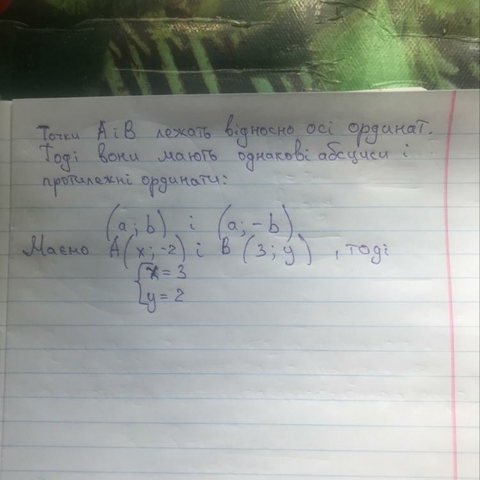 Точки А і В лежать відносно осі ординат.
Тоді вони мають однакові абсциси і
протилежні ординати:
(a; b) і (a; -b)
Маємо A(x; -2) і B(3; y), тоді
{x = 3
y = 2